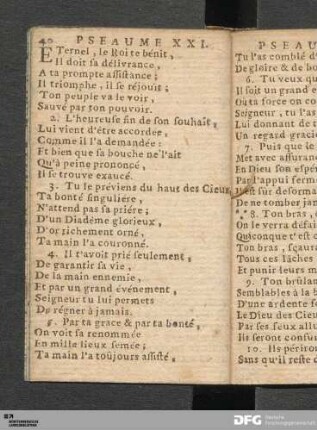 40 PSEAUME XXI.
ETernel, le Roi te bénit,
Il doit sa délivrance,
A ta prompte assistance;
Il triomphe, il se réjouit;
Ton peuple va le voir,
Sauvé par ton pouvoir.
2. L'heureuse fin de son souhait,
Lui vient d'être accordée,
Comme il l'a demandée:
Et bien que sa bouche ne l'ait
Qu'à peine prononcé,
Il se trouve exaucé.
3. Tu le préviens du haut des Cieux,
Ta bonté singuliére,
N'attend pas sa priére;
D'un Diadème glorieux,
D'or richement orné,
Ta main l'a couronné.
4. Il t'avoit prié seulement,
De garantir sa vie,
De la main ennemie,
Et par un grand événement,
Seigneur tu lui permets
De régner à jamais.
5. Par ta grace & par ta bonté,
On voit sa renommée
En mille lieux semée;
Ta main l'a toûjours assisté,
PSEAU
Tu l'as comblé d'
De gloire & de bo
6. Tu veux qu
Il soit un grand e
Où ta force on co
Seigneur, tu l'as
Lui donnant de t
Un regard gracie
7. Puis que le
Met avec assuran
En Dieu son espé
Par l'appui ferme
Il est sûr déformai
De ne tomber jam
* 8. Ton bras,
On le verra défai
Quiconque t'est c
Ton bras, sçaura
Tous ces lâches
Et punir leurs m
9. Ton brûlan
Semblables à la b
D'une ardente fo
Le Dieu des Cieu
Par ses feux allu
Ils seront consum
10. Ils périron
Sans qu'il reste d
DFG Deutsche Forschungsgemeinschaft